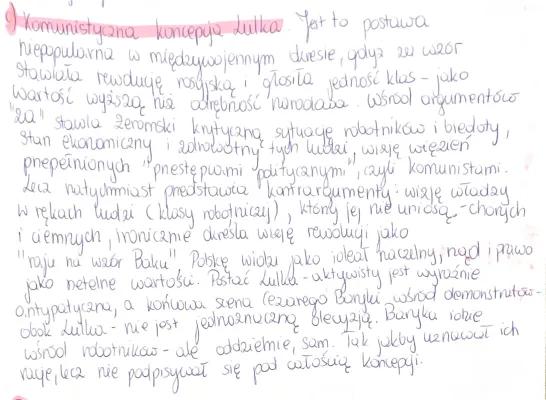 c) Komunistyczna koncepcja Lulka. Jest to postawa
niepopularna w międzywojennym okresie, gdyż za wzór
stawiała rewolucję rosyjską i głosiła jedność klas - jako
wartość wyższą niż odrębność narodowa. Wśród argumentów
"za" stawia Żeromski krytyczną sytuację robotników i biedoty,
stan ekonomiczny i zdrowotny tych ludzi, wizję więzień
przepełnionych "przestępcami politycznymi", czyli komunistami.
Lecz natychmiast przedstawia kontrargumenty: wizję władzy
w rękach ludzi (klasy robotniczej), który jej nie uniosą - chorych
i ciemnych, ironicznie określa wizję rewolucji jako
"raju na wzór Baku". Polskę widzi jako ideał naczelny, rząd i prawo
jako rzetelne wartości. Postać Lulka - aktywisty jest wyraźnie
antypatyczna, a końcowa scena Cezarego Baryki wśród demonstrantów -
obok Lulka - nie jest jednoznaczną decyzją. Baryka idzie
wśród robotników - ale oddzielnie, sam. Tak jakby uznawał ich
rację, lecz nie podpisywał się pod całością koncepcji.